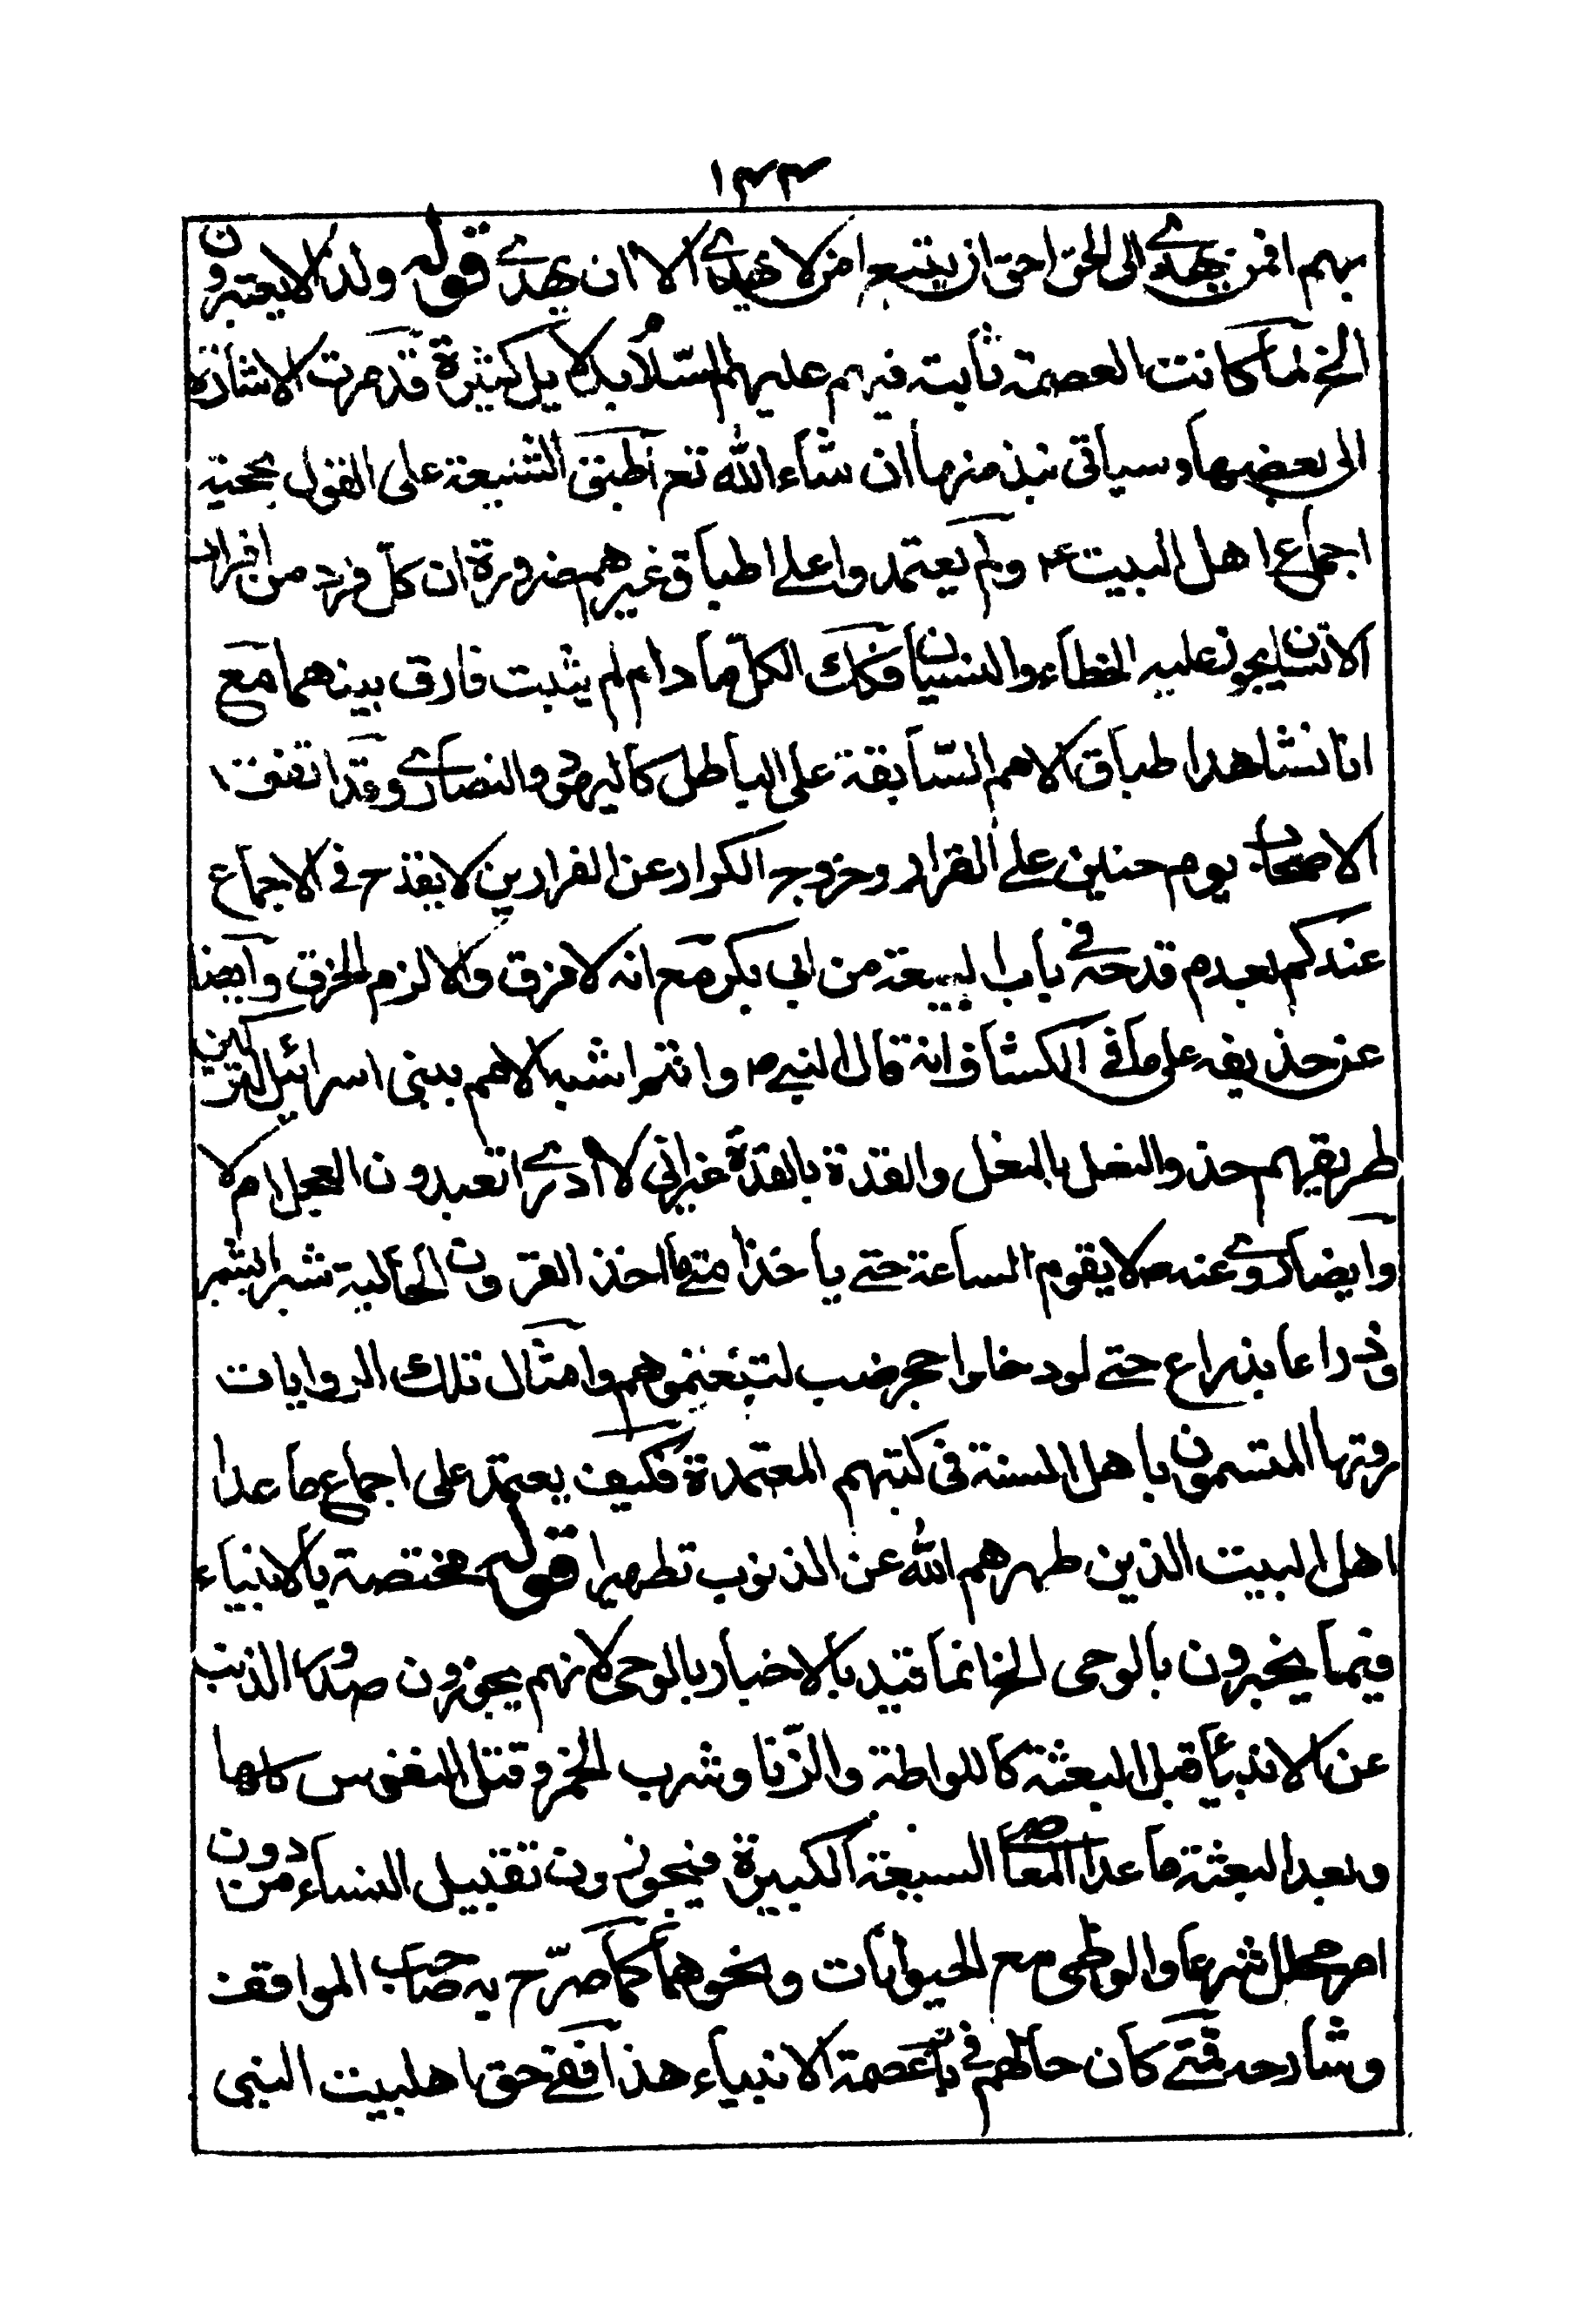 ١٣٣
بهم افمن يهدى الى الحق احق ان يتبع امن لا يهدى الا ان يهدى قوله ولذا لا يعتبرون
الخ لما كانت العصمة ثابتة فيهم عليهم السلام بدلايل كثيرة قد مرت الاشارة
الى بعضها و سياتى نبذ منها ان شاء الله تع اطبق الشيعة على القول بحجية
اجماع اهل البيت ع و لم يعتمدوا على اطباق غيرهم ضرورة ان كل فرد من افراد
الانسان يجوز عليه الخطاء والنسيان فكك الكل ما دام لم يثبت فارق بينهما مع
انا نشاهد اطباق الامم السابقة على الباطل كاليهود والنصارى و قد اتفقت
الاصحاب يوم حنين على الفرار وخروج الكرار عن الفرارين لا يقدح فى الاجماع
عندكم بعدم قدحه فى باب البيعة من ابى بكر مع انه لا فرق والا لزم الخرق وايضا
عن حذيفه على ما فى الكشاف انه قال النبى ص وانتم اشبه الامم ببنى اسرائيل لتركبن
طريقهم حذو النعل بالنعل والقذة بالقذة غير انى لا ادرى اتعبدون العجل ام لا
وايضا روى عنه ص لا يقوم الساعة حتى ياخذ امتى ما اخذ القرون الخالية شبرا بشبر
و ذراعا بذراع حتى لو دخلوا حجر ضب لتبعتموهم وامثال تلك الروايات
رقتها المتسمون باهل السنة فى كتبهم المعتمدة فكيف يعتمد على اجماع ما عدا
اهل البيت الذين طهرهم الله عن الذنوب تطهيرا قوله مختصة بالانبياء
فيما يخبرون بالوحى الخ انما قيد بالاخبار بالوحى لانهم يجوزون صدور الذنب
عن الانبياء قبل البعثة كاللواطة والزنا وشرب الخمر و قتل النفوس كلها
وبعد البعثة ما عدا المعاصى السبعة الكبيرة فيجوزون تقبيل النساء من دون
امر محلل شرعا والوطى مع الحيوانات ونحوهما كما صرح به صاحب المواقف
و شارحه فمتى كان حالهم فى باب عصمة الانبياء هذا ففى حق اهلبيت النبى